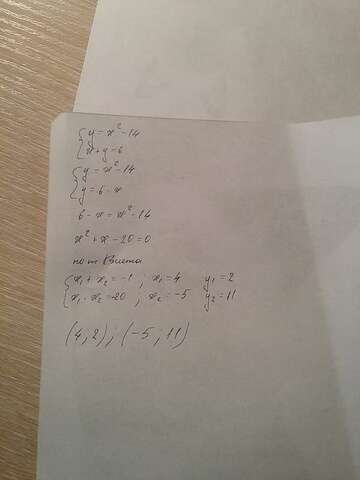 {y = x² - 14
{x + y = 6
{y = x² - 14
{y = 6 - x
6 - x = x² - 14
x² + x - 20 = 0
по т Виета
{x₁ + x₂ = -1 ; x₁ = 4 y₁ = 2
{x₁ · x₂ = -20 ; x₂ = -5 y₂ = 11
(4 ; 2) ; (-5 ; 11)